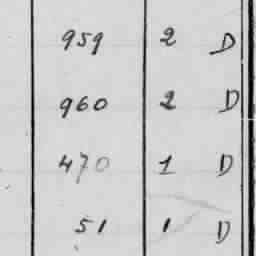 959 2 D
960 2 D
470 1 D
51 1 D